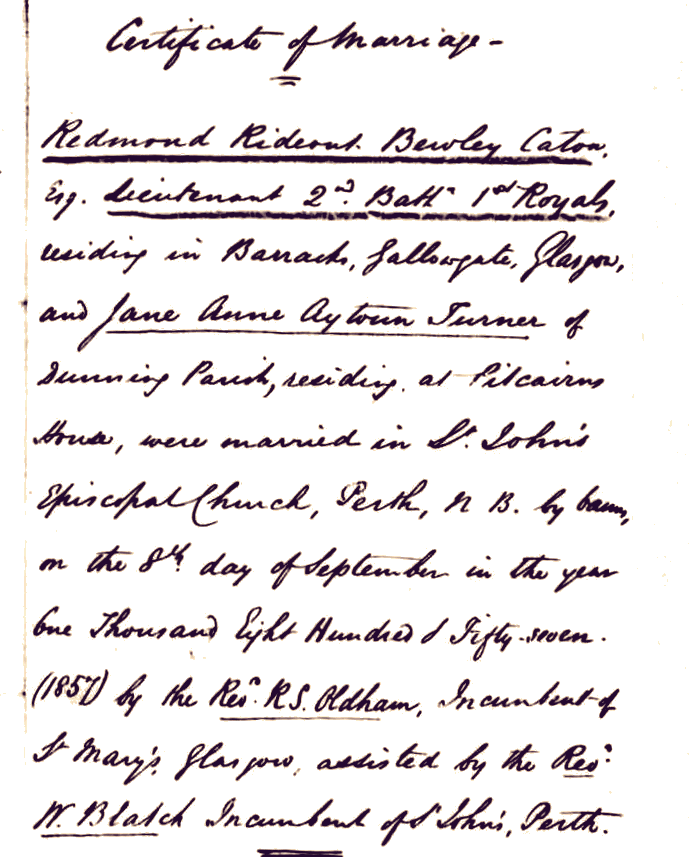 Certificate of Marriage -
Redmond Rideout Bewley Caton,
Esq. Lieutenant 2nd. Battn 1st Royals,
residing in Barracks, Gallowgate, Glasgow,
and Jane Anne Aytoun Turner of
Dunning Parish, residing at Pitcairns
House, were married in St. John's
Episcopal Church, Perth, N B. by banns,
on the 8th day of September in the year
One Thousand Eight Hundred & Fifty-seven.
(1857) by the Revd. R S. Oldham, Incumbent of
St Mary's, Glasgow, assisted by the Revd.
W. Blatch Incumbent of St John's, Perth.